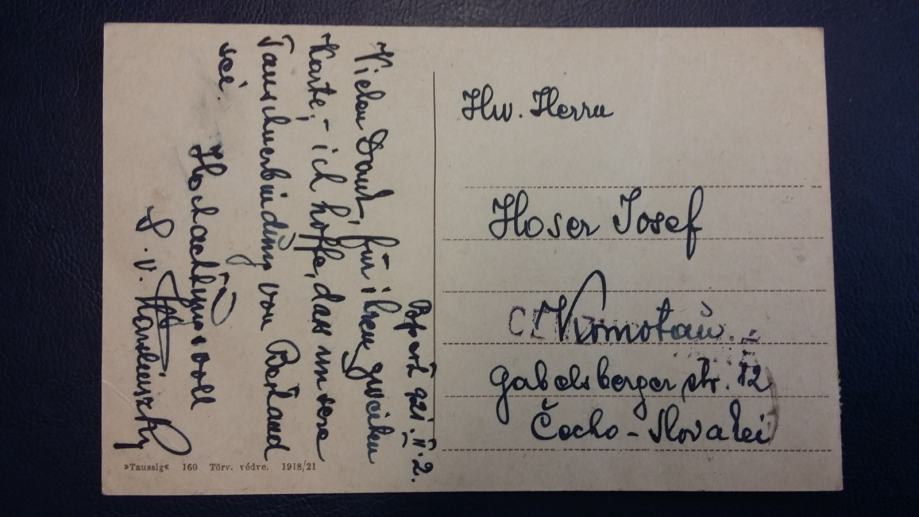 921. II. 2.
Vielen Dank, für ihren zweiten
Karte, - ich hoffe, das unsere
Tauschverbindung von Bestand
sei.
Hochachtungsvoll
S. v.
Hw. Herrn
Hoser Josef
Komotau
Gabelsberger str. 12
Čecho-Slovakei
»Taussig« 160 Törv. védve. 1918/21